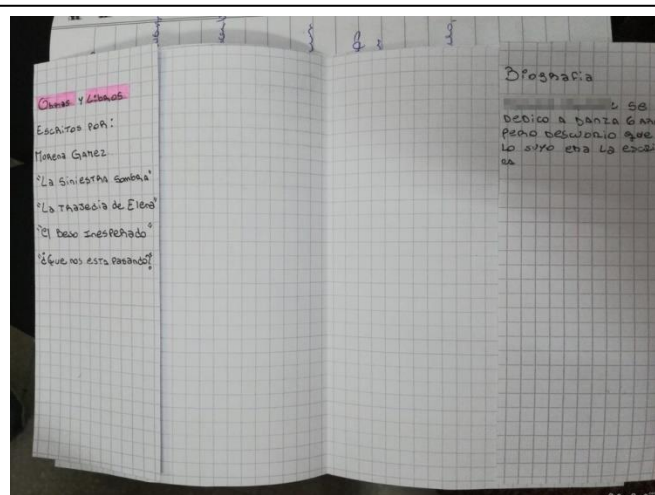 Obras y Libros
Escritos por:
Morena Gamez
"La siniestra sombra"
"La tragedia de Elena"
"El beso inesperado"
"¿Que nos esta pasando?
Biografia
se
dedico a danza 6 añ
pero descubrio que
lo suyo era la escri